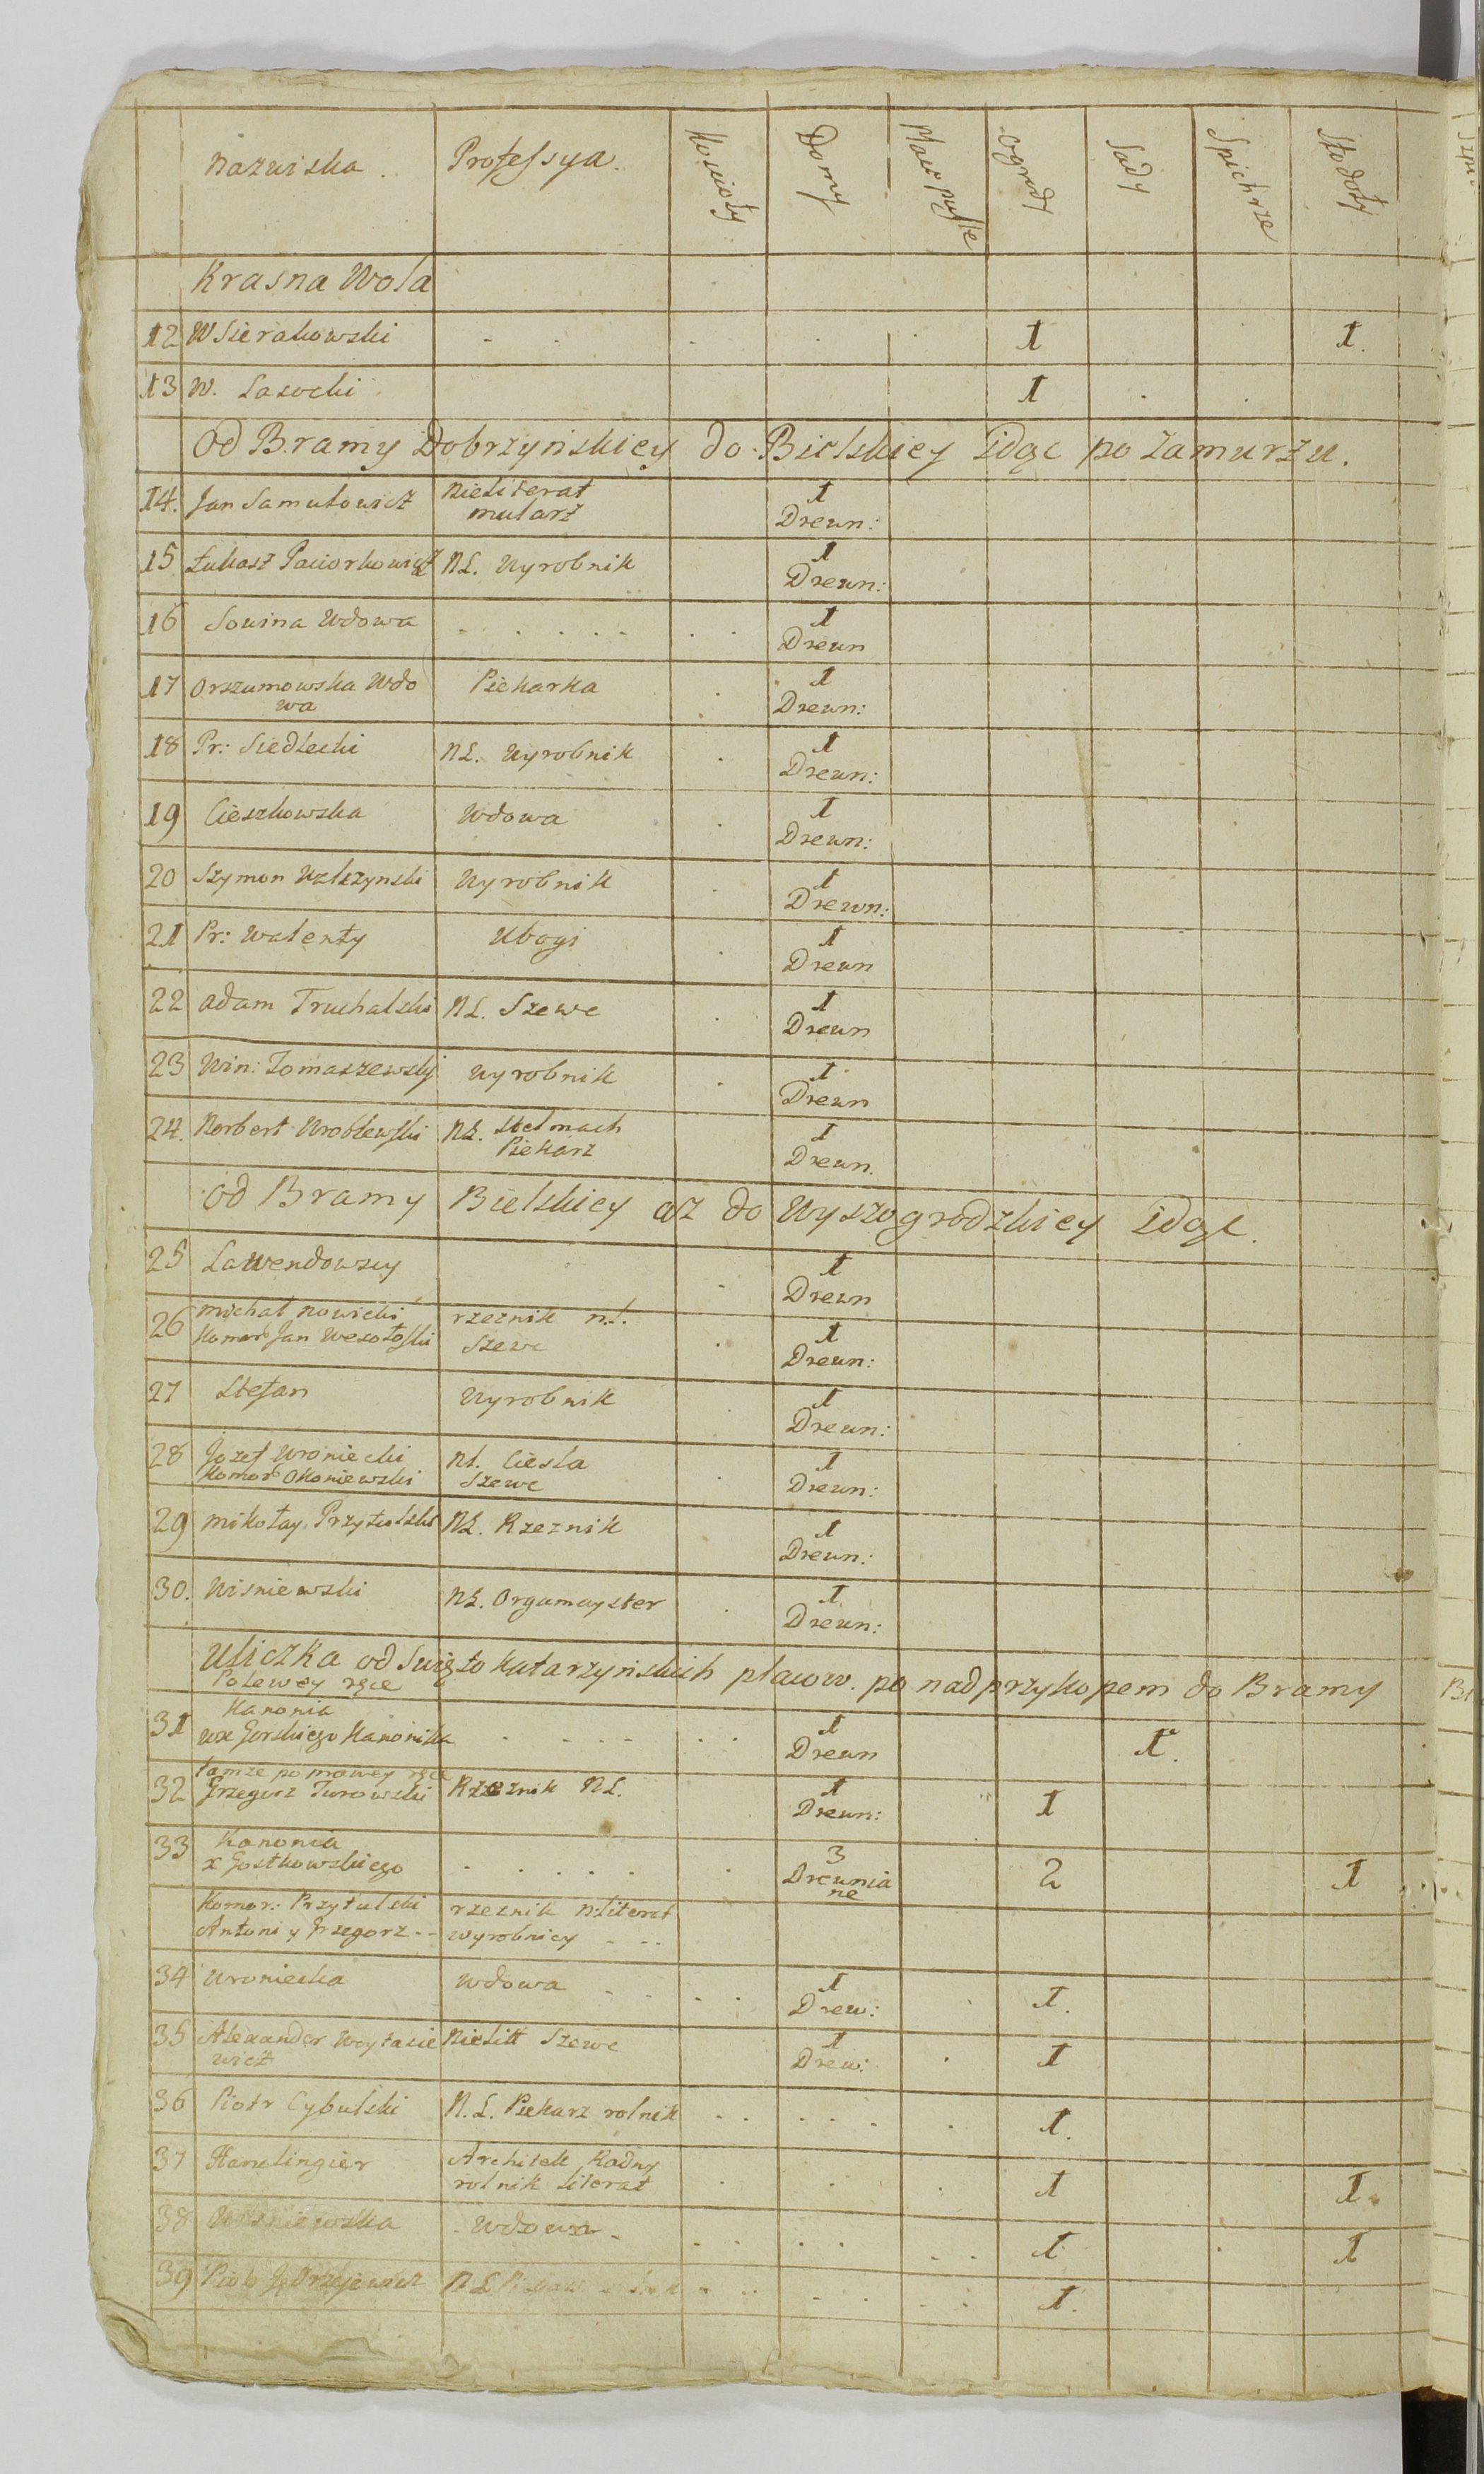 Nazwiska. Professya. Kościoły Domy Place puste Ogrody Sady Spichrze Stodoły
Krasna Wola
12 W Sierakowski 1 1.
13 W. Lasocki 1
Od Bramy Dobrzyńskiey do Bielskiey Idąc po Zamurzu.
14. Jan Samułowicz Nieliterat 1
mularz Drewn:
15 Łukasz Paciorkowicz NL. Wyrobnik 1
Drewn:
16 Sowina Wdowa 1
Drewn
17 Orszumowska Wdo Piekarka 1
wa Drewn:
18 Pr: Siedlecki NL. Wyrobnik 1
Drewn:
19 Cieszkowska Wdowa 1
Drewn:
20 Szymon Wyrobnik 1
Drewn:
21 Pr: Walenty Ubogi 1
Drewn
22 Adam Truchalski NL. Szewc 1
Drewn
23 Win: Tomaszewski Wyrobnik 1
Drewn
24. Norbert Wroblewski NL. Stelmach 1
Piekarz Drewn.
Od Bramy Bielskiey aż do Wyszogrodzkiey Idąc.
25 Lawendowscy 1
Drewn
26 Michał Nowicki rzeznik n.l. 1
Komor Jan Wesołoski Szewc Drewn:
27 Stefan Wyrobnik 1
Drewn:
28 Jozef Wroniecki Nl. Ciesla 1
Komor Okoniewski Szewc Drewn:
29 Mikołay Przytulski NL. Rzeznik 1
Drewn:
30. Wisniewski NL. Orgamayster 1
Drewn:
Uliczka od Swięto Katarzyńskich placow. po nad przykopem do Bramy
Po lewey ręce
31 Kanonia 1 1.
wx Gorskiego Kanonika Drewn
tamze po prawey ręce
32 Grzegorz Turowski Rzeznik NL. 1 1
Drewn:
33 Kanonia 3 2 1
x Gostkowskiego Drewnia
ne
Komor: Przytulski rzeznik n:literat
Antoni y Grzegorz -- wyrobnicy - --
34 Wroniecka Wdowa 1 1.
Drew:
35 Alexander Woytasie Nielitt Szewc 1 1
wicz Drew:
36 Piotr Cybulski N.L. Piekarz rolnik 1.
37 Architek Radny 1 1.
rolnik literat
38 Wisniewska Wdowa 1 1
39 Piotr NL 1.